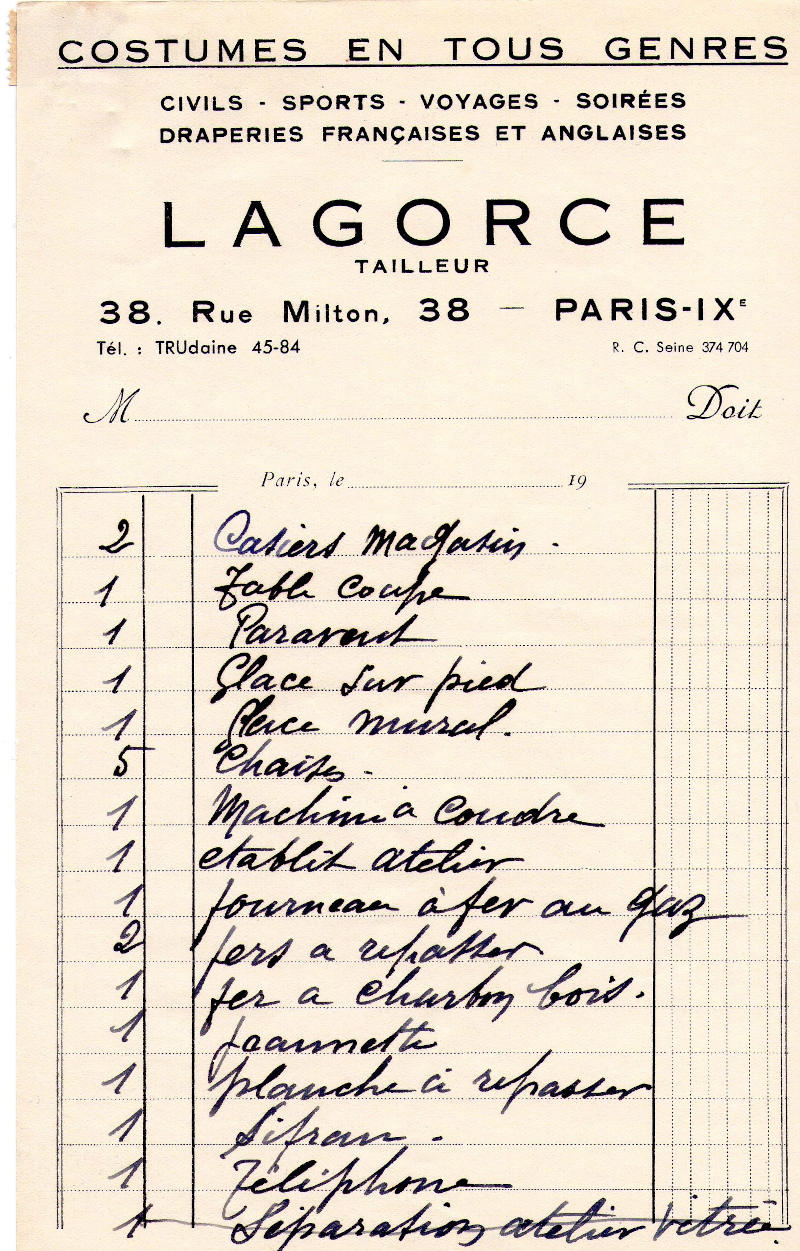 COSTUMES EN TOUS GENRES
CIVILS - SPORTS - VOYAGES - SOIRÉES
DRAPERIES FRANÇAISES ET ANGLAISES
LAGORCE
TAILLEUR
38. Rue Milton, 38 — PARIS-IXᴱ
Tél. : TRUdaine 45-84 R. C. Seine 374 704
M Doit
Paris, le 19
2 Casiers Magasin.
1 Table coupe
1 Paravent
1 Glace sur pied
1 Glace mural.
5 Chaises.
1 Machine à Coudre
1 etablit atelier
1 fourneau à fer au gaz
2 fers a repasser
1 fer a charbon bois.
1 jeannette
1 planche à repasser
1
1 Téléphone
1 Séparation atelier vitrée.